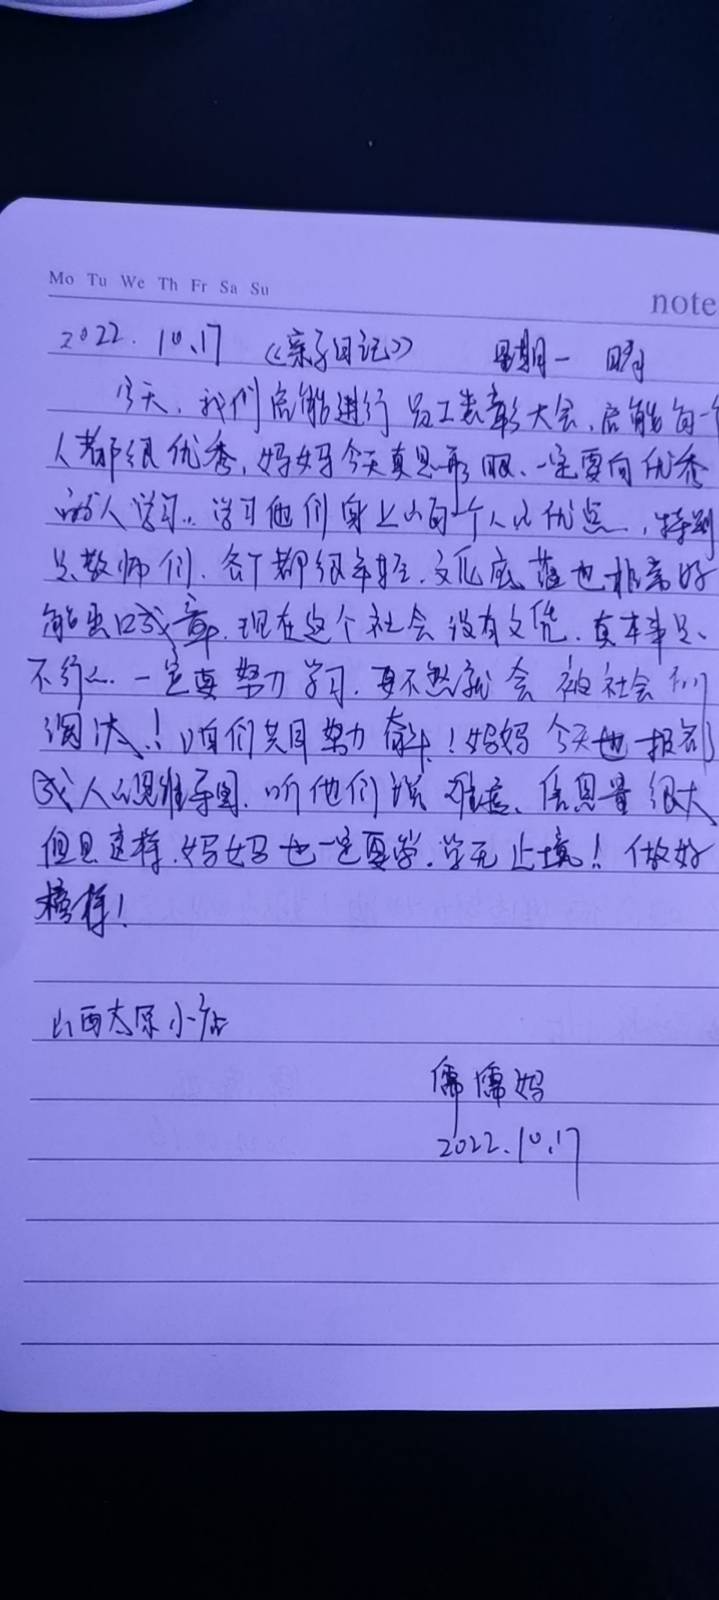 Mo Tu We Th Fr Sa Su
note
2022.10.17 《亲子日记》 星期一 晴
今天,我们启能进行员工表彰大会,启能每一个
人都很优秀,妈妈今天真是形眼,一定要向优秀
的人学习。学习他们身上的每个人的优点,特别
是教师们,各个都很年轻,文化底蕴也相当好
能出口成章,现在这个社会没有文凭,真本事是
不行的。一定要努力学习,要不然就会被社会们
淘汰!咱们共同努力奋斗!妈妈今天也报名
成人的思维导图,听他们说难度、信息量很大
但是这样,妈妈也一定要学,学无止境!做好
榜样!
山西太原小店
儒儒妈
2022.10.17